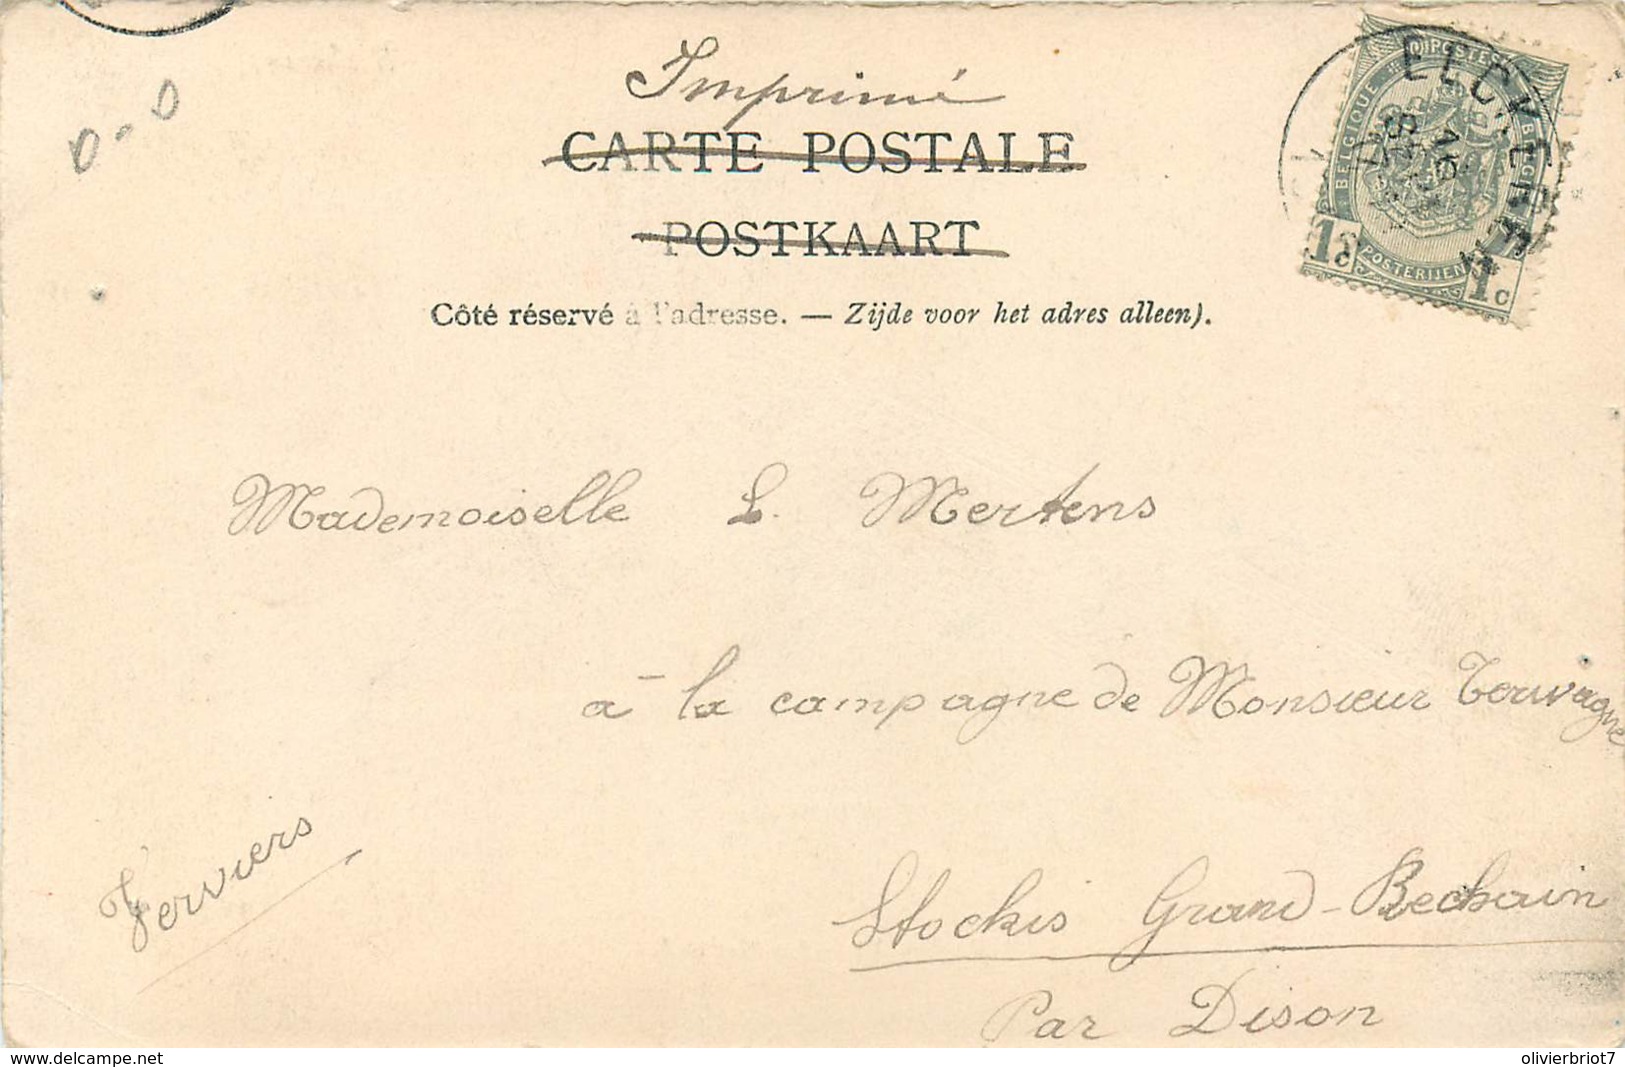 Imprimé
CARTE POSTALE
POSTKAART
Côté réservé à l'adresse. — Zijde voor het adres alleen).
POSTES
BELGIQUE
BELGIË
POSTERIJEN
1c
1c
Mademoiselle L. Mertens
à la campagne de Monsieur Touwagne
Verviers
Stockis Grand-Rechain
Par Dison
www.delcampe.net
olivierbriot7